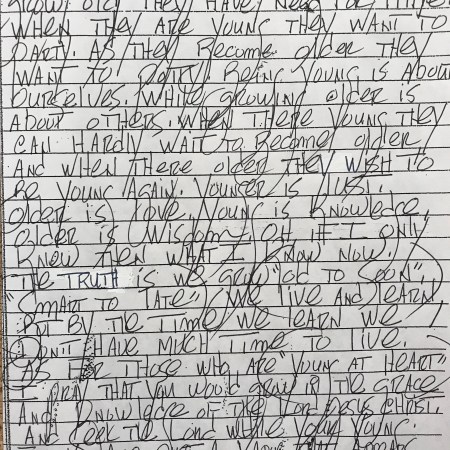 GROW OLD THEY HAVE NEED FOR
WHEN THEY ARE YOUNG THEY WANT TO
PARTY. AS THEY BECOME OLDER THEY
WANT TO PARTY BEING YOUNG IS ABOUT
OURSELVES. WHILE GROWING OLDER IS
ABOUT OTHERS. WHEN THERE YOUNG THEY
CAN HARDLY WAIT TO BECOME OLDER
AND WHEN THERE OLDER THEY WISH TO
BE YOUNG AGAIN. YOUNGER IS LUST.
OLDER IS LOVE. YOUNG IS KNOWLEDGE,
OLDER IS WISDOM. OH IF I ONLY
KNEW THEN WHAT I KNOW NOW.
THE TRUTH IS WE GROW "OLD TO SOON"
"SMART TO LATE" WE LIVE AND LEARN
BUT BY THE TIME WE LEARN WE
DON'T HAVE MUCH TIME TO LIVE.
AS FOR THOSE WHO ARE "YOUNG AT HEART"
I PRAY THAT YOU WOULD GROW IN THE GRACE
AND KNOWLEDGE OF THE LORD JESUS CHRIST,
AND SEEK THE LORD WHILE YOUR YOUNG.